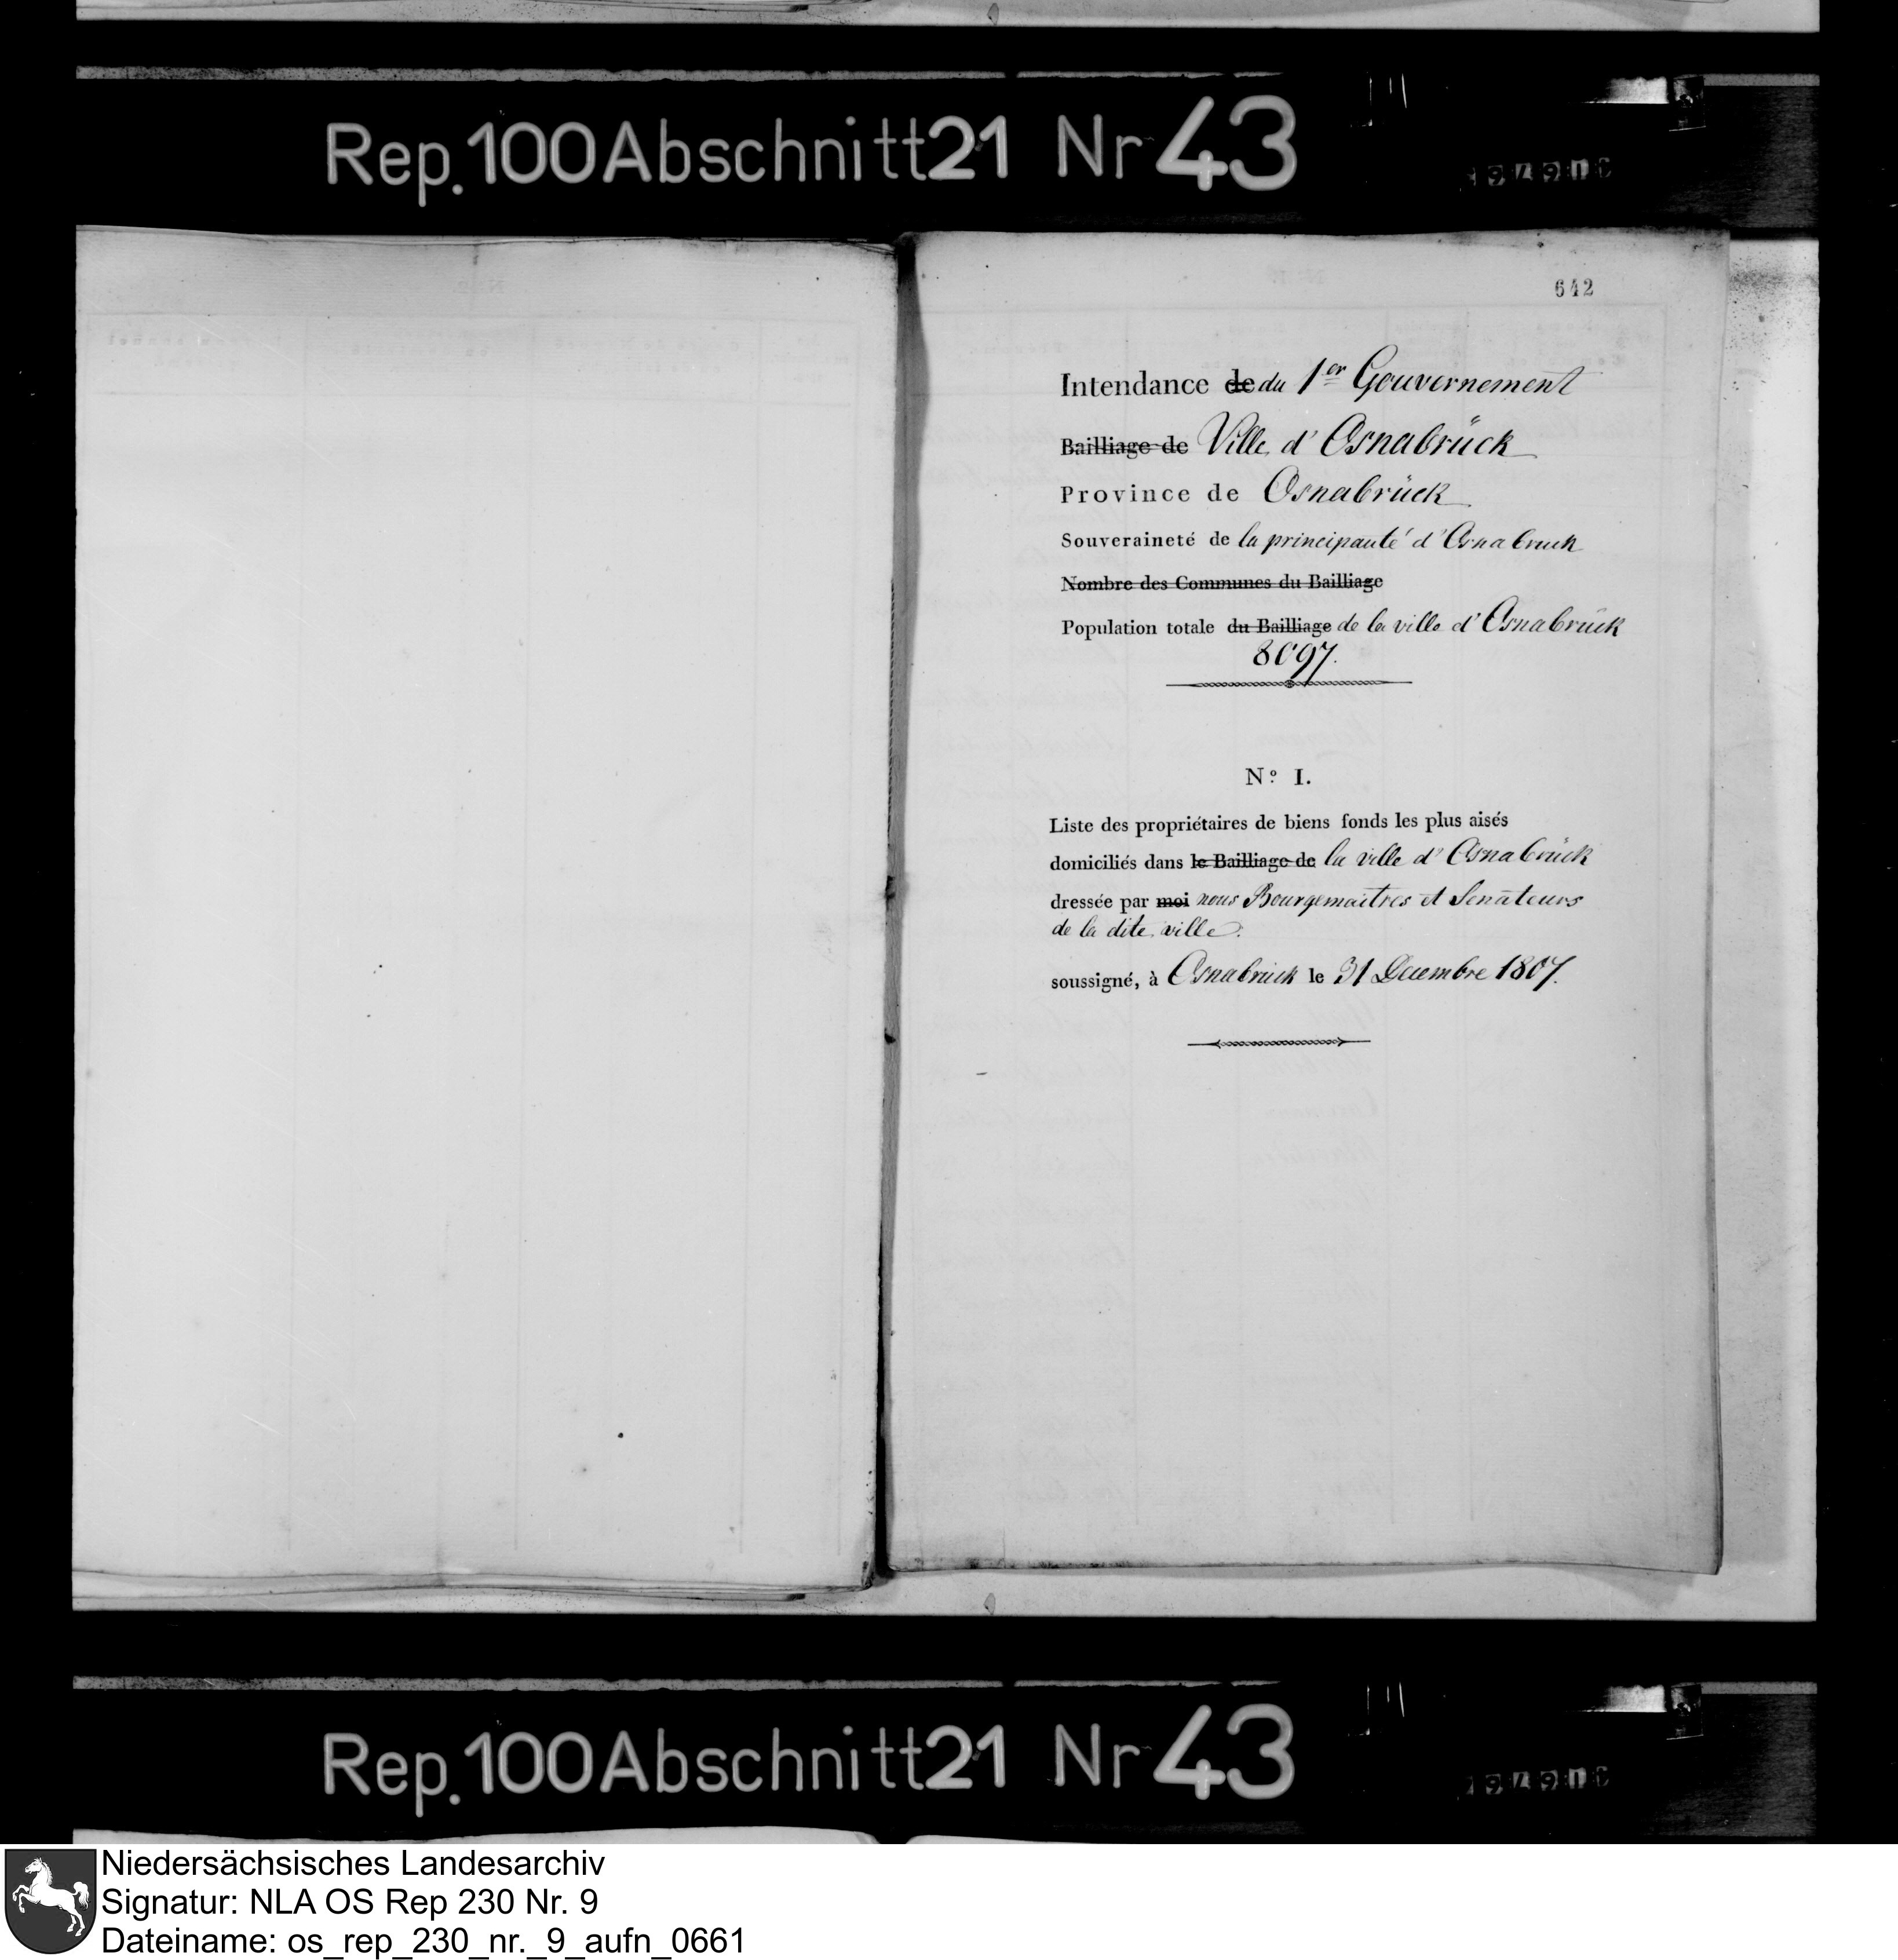 Rep. 100 Abschnitt 21 Nr 43
642
Intendance de du 1er Gouvernement
Bailliage de Ville d'Osnabrück
Province de Osnabrück
Souveraineté de la principauté d'Osnabruck
Nombre des Communes du Bailliage
Population totale du Bailliage de la ville d'Osnabrück
8097.
Nº I.
Liste des propriétaires de biens fonds les plus aisés
domiciliés dans le Bailliage de la ville d'Osnabrück
dressée par moi nous Bourgemaitres et Senateurs
de la dite ville.
soussigné, à Osnabrück le 31 Decembre 1807.
Rep. 100 Abschnitt 21 Nr 43
Niedersächsisches Landesarchiv
Signatur: NLA OS Rep 230 Nr. 9
Dateiname: os_rep_230_nr._9_aufn_0661